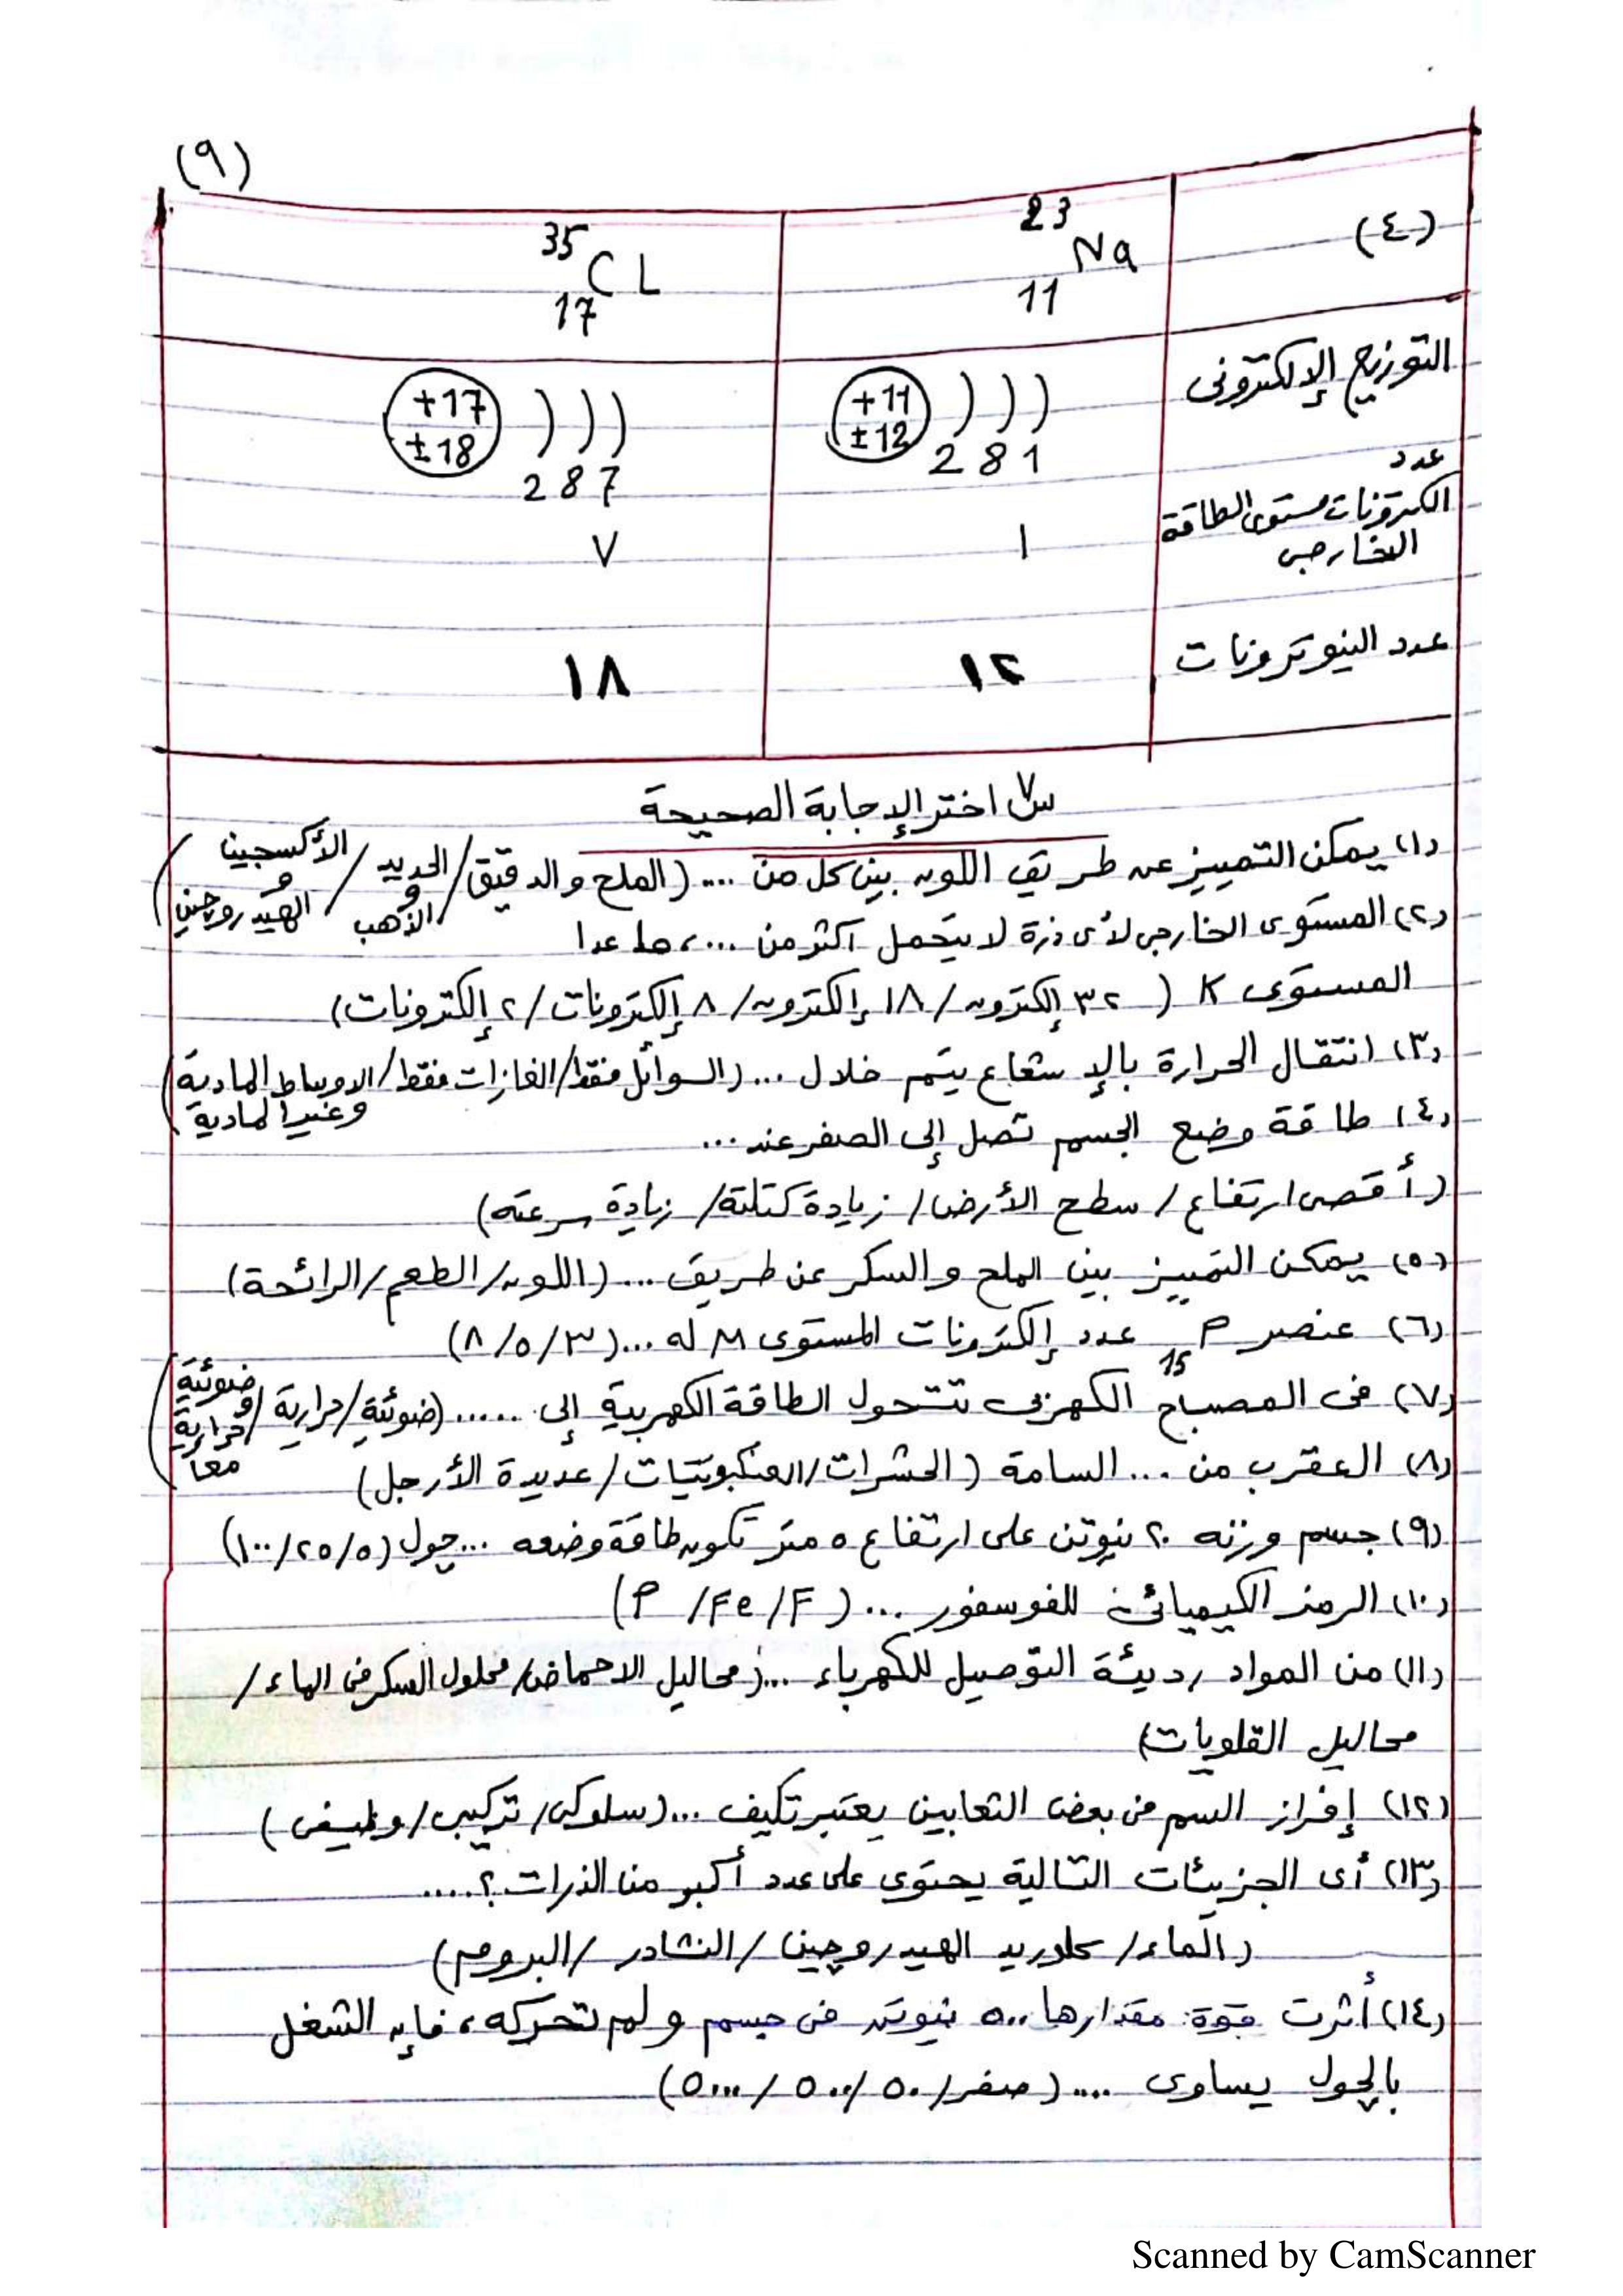 (٩)
(٤) 23 Na 11 35 CL 17
التوزيع الإلكترونى +11 ±12 2 8 1 +17 ±18 2 8 7
عدد
الكترونات مستوى الطاقة
الخارجى ١ ٧
عدد النيوترونات ١٢ ١٨
س٧ اختر الإجابة الصحيحة
(١) يمكن التمييز عن طريق اللون بين كل من .... (الملح والدقيق / الحديد و الذهب / الأكسجين و الهيدروجين)
(٢) المستوى الخارجى لأى ذرة لا يتحمل أكثر من ....، ما عدا
المستوى K (٣٢ إلكترون / ١٨ إلكترون / ٨ إلكترونات / ٢ إلكترونات)
(٣) انتقال الحرارة بالإشعاع يتم خلال ... (السوائل فقط/الغازات فقط/الاوساط المادية
وغير المادية)
(٤) طاقة وضع الجسم تصل إلى الصفر عند ...
(أقصى ارتفاع / سطح الأرض / زيادة كتلتة / زيادة سرعته)
(٥) يمكن التمييز بين الملح والسكر عن طريق ... (اللون/الطعم/الرائحة)
(٦) عنصر P 15 عدد إلكترونات المستوى M له ... (٣/٥/٨)
(٧) فى المصباح الكهربى تتحول الطاقة الكهربية إلى ..... (ضوئية/حرارية/ضوئية و حرارية معا)
(٨) العقرب من ... السامة (الحشرات/العنكبوتيات/عديدة الأرجل)
(٩) جسم وزنه ٢٠ نيوتن على ارتفاع ٥ متر تكون طاقة وضعه ... جول (٥/٢٥/١٠٠)
(١٠) الرمز الكيميائى للفوسفور ... (P /Fe/F)
(١١) من المواد رديئة التوصيل للكهرباء ... (محاليل الاحماض/محلول السكر فى الماء/
محاليل القلويات)
(١٢) إفراز السم فى بعض الثعابين يعتبر تكيف ... (سلوكى/تركيبى/وظيفى)
(١٣) أى الجزيئات التالية يحتوى على عدد أكبر من الذرات ؟ ....
(الماء/ كلوريد الهيدروچين /النشادر /البروم)
(١٤) أثرت قوة مقدارها ٥٠٠ نيوتن فى جسم ولم تحركه، فإن الشغل
بالچول يساوى .... (صفر/٥٠/٥٠٠/٥٠٠٠)
Scanned by CamScanner